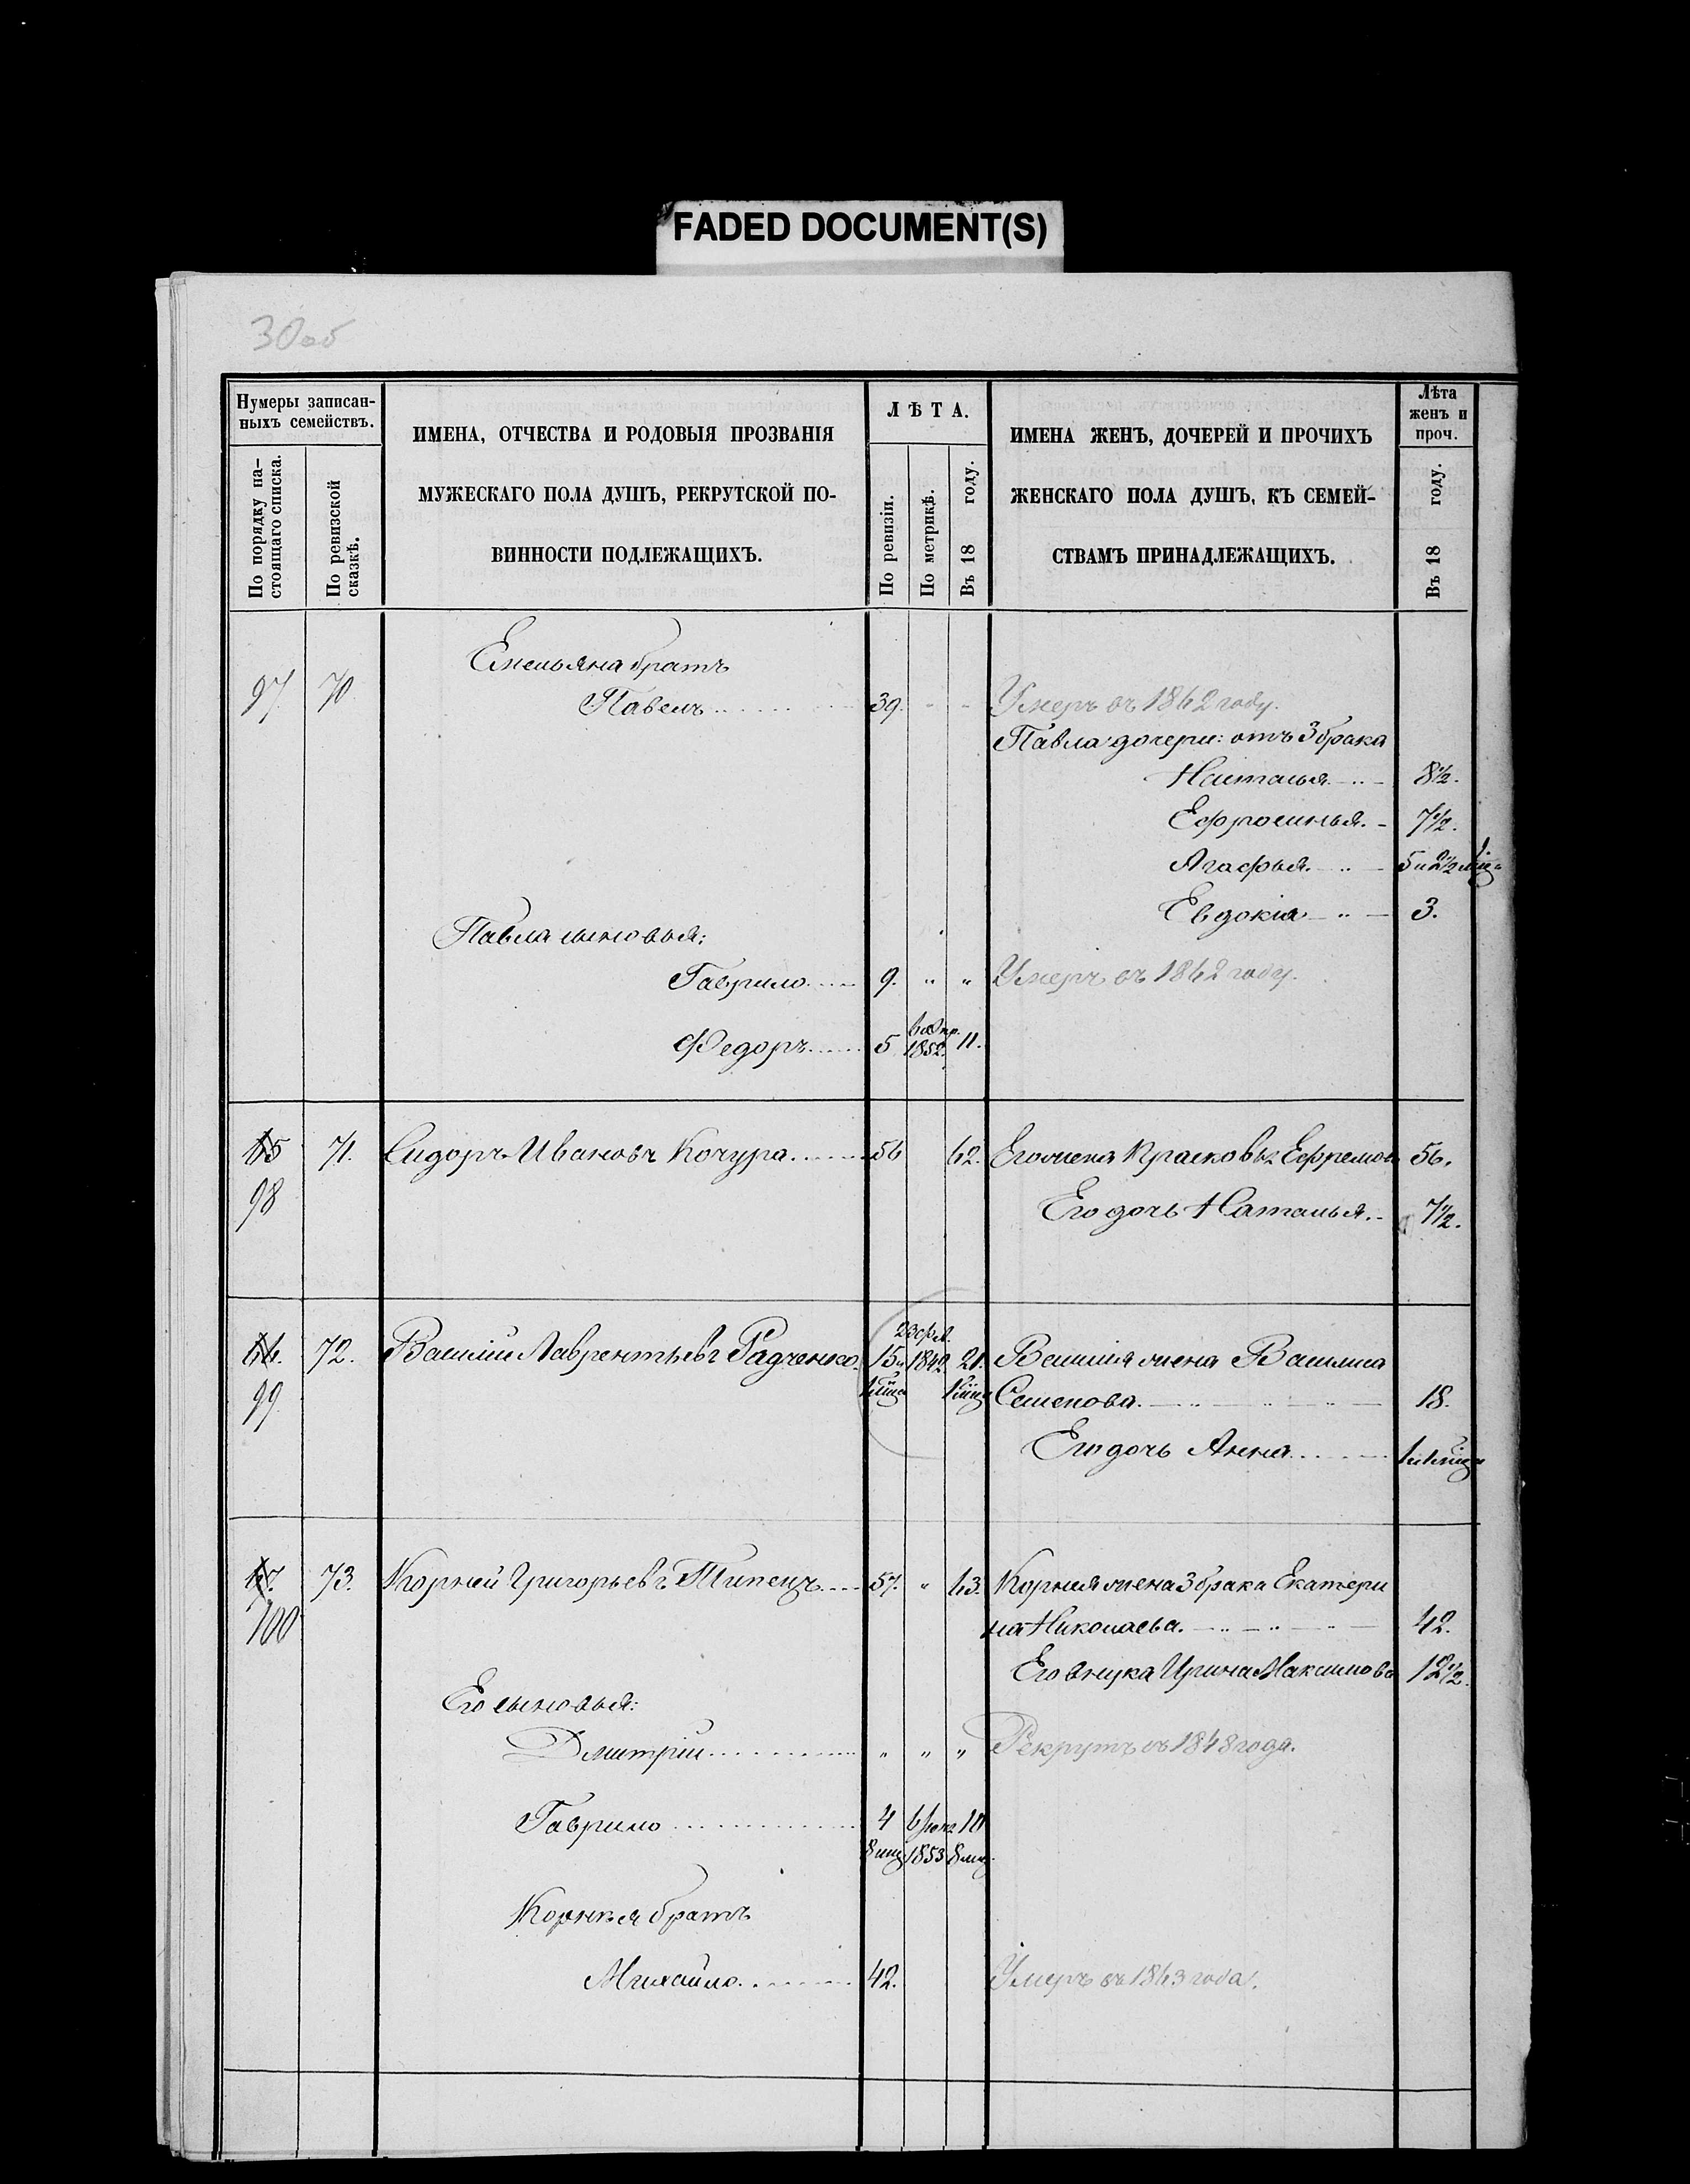 FADED DOCUMENT(S)
30об
Нумеры записан-
ныхъ семействъ.
По порядку на-
стоящаго списка.
По ревизской
сказкѣ.
ИМЕНА, ОТЧЕСТВА И РОДОВЫЯ ПРОЗВАНІЯ
МУЖЕСКАГО ПОЛА ДУШЪ, РЕКРУТСКОЙ ПО-
ВИННОСТИ ПОДЛЕЖАЩИХЪ.
ЛѢТА.
По ревизіи.
По метрикѣ.
Въ 18 году.
ИМЕНА ЖЕНЪ, ДОЧЕРЕЙ И ПРОЧИХЪ
ЖЕНСКАГО ПОЛА ДУШЪ, КЪ СЕМЕЙ-
СТВАМЪ ПРИНАДЛЕЖАЩИХЪ.
Лѣта
женъ и
проч.
Въ 18 году.
Емельяна братъ
97 70 Павелъ 39. Умеръ въ 1862 году.
Павла дочери: отъ 3 брака
Наталья 8½.
Ефросинья 7½.
Агафья 5 и 2½
Евдокія 3.
Павла сыновья:
Гаврило 9. " " Умеръ въ 1862 году.
Федоръ 5 1852. 11.
65 71. Сидоръ Ивановъ Кочура 56 62. Его жена Прасковья Ефремова 56.
98 Его дочь Наталья 7½.
23 фев.
66. 72. Василій Лаврентьевъ Радченко 15 и 1842. 21. Василія жена Василиса
99 Семенова 18.
Его дочь Анна
67. 73. Корней Григорьевъ 57. " 63. Корнея жена 3 брака Екатери
100 на Николаева 42.
Его внука Ирина Максимова 12½.
Его сыновья:
Дмитрій " " " Рекрутъ съ 1848 года.
Гаврило 4 10
8 1853 8
Корнея братъ
Михайло 42. Умеръ въ 1863 года.